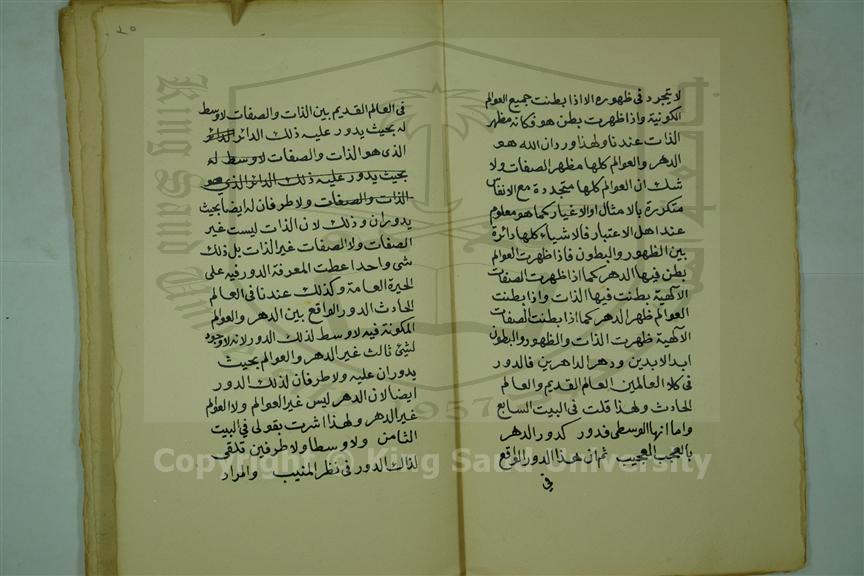 لا يتجرد فى ظهوره الا اذا بطنت جميع العوالم
الكونية واذا ظهرت بطن هو فكانه مظهر
الذات عندنا ولهذا ورد ان الله هو
الدهر والعوالم كلها مظهر الصفات ولا
شك ان العوالم كلها متجددة مع الانفاس
متكررة بالامثال او الاغيار كما هو معلوم
عند اهل الاعتبار فالاشياء كلها دائرة
بين الظهور والبطون فاذا ظهرت العوالم
بطن فيها الدهر كما اذا ظهرت الصفات
الالهية بطنت فيها الذات واذا بطنت
العوالم ظهر الدهر كما اذا بطنت الصفات
الالهية ظهرت الذات والظهور والبطون
ابد الابدين ودهر الداهرين فالدور
فى كلا العالمين العالم القديم والعالم
الحادث ولهذا قلت فى البيت السابع
واما انها الوسطى فدور كدور الدهر
بالعجب العجيب ثم ان هذا الدور الواقع
فى
٢٠
فى العالم القديم بين الذات والصفات لا وسط
له بحيث يدور عليه ذلك الدائر الدائر
الذى هو الذات والصفات لا وسط له
بحيث يدور عليه ذلك الدائر الذى هو
الذات والصفات ولا طرفان له ايضا بحيث
يدوران وذلك لان الذات ليست غير
الصفات ولا الصفات غير الذات بل ذلك
شى واحد اعطت المعرفة الدور فيه على
الحيرة العامة وكذلك عندنا فى العالم
الحادث الدور الواقع بين الدهر والعوالم
المكونة فيه لا وسط لذلك الدور لانه لا وجود
لشئ ثالث غير الدهر والعوالم بحيث
يدوران عليه ولا طرفان لذلك الدور
ايضا لان الدهر ليس غير العوالم ولا العوالم
غير الدهر ولهذا اشرت بقولى فى البيت
الثامن ولا وسطا ولا طرفين تلقى
لذاك الدور فى نظر المنيب والمراد
King Saud University
1957
Copyright © King Saud University